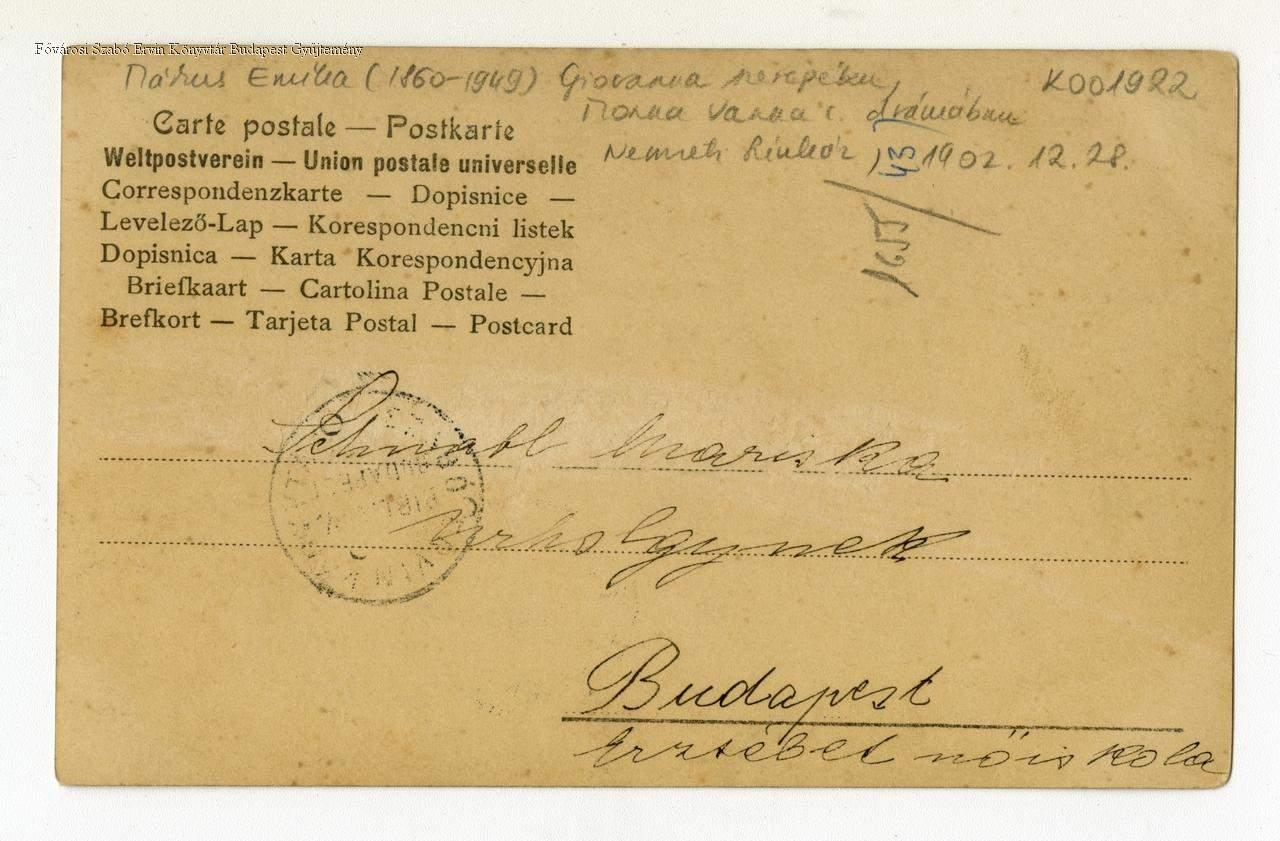 Fővárosi Szabó Ervin Könyvtár Budapest Gyűjtemény
Márkus Emília (1860-1949) Giovanna szerepében, K001922
Monna Vanna c. drámában
Nemzeti Színház, 1902. 12. 28.
43
1655
Carte postale — Postkarte
Weltpostverein — Union postale universelle
Correspondenzkarte — Dopisnice —
Levelező-Lap — Korespondencni listek
Dopisnica — Karta Korespondencyjna
Briefkaart — Cartolina Postale —
Brefkort — Tarjeta Postal — Postcard
Schwabl Mariska
urhölgynek
Budapest
Erzsébet nőiskola